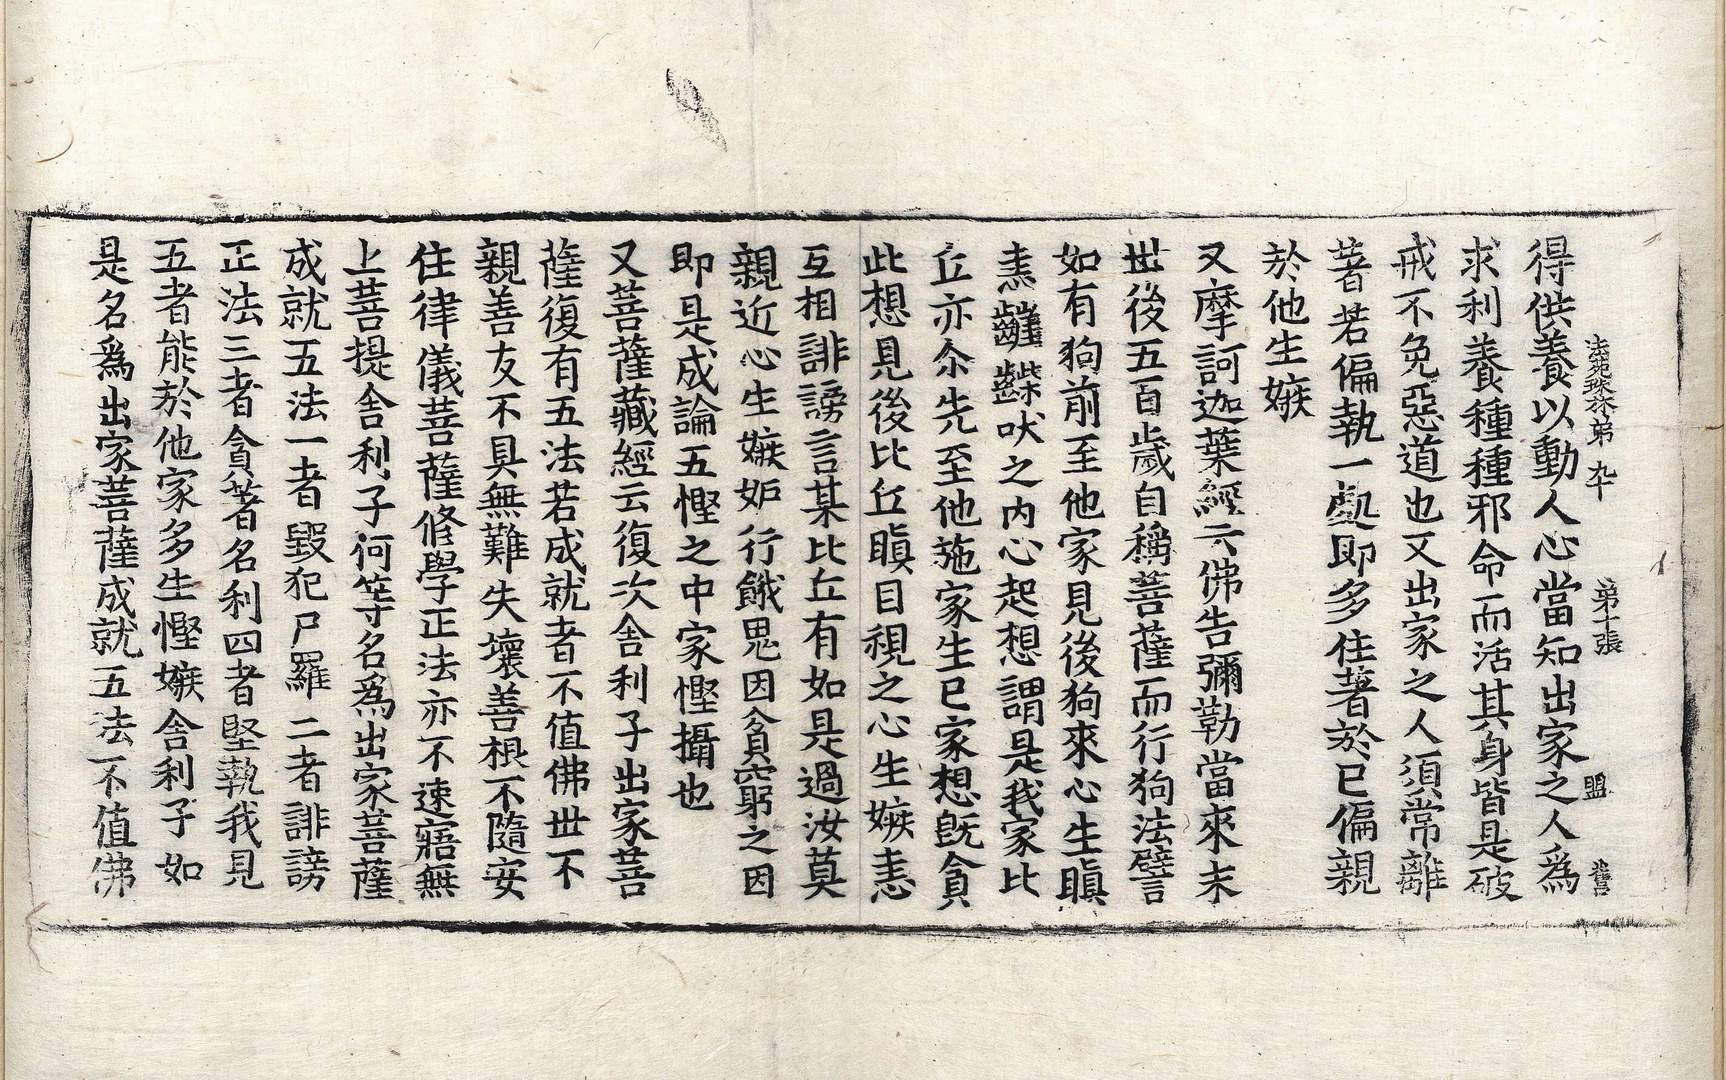 得供養以動人心當知出家之人爲
法苑珠林第九十 第十張 盟
求利養種種邪命而活其身皆是破
戒不免惡道也又出家之人須常離
著若偏執一處即多住著於已偏親
於他生嫉
又摩訶迦葉經云佛告彌勒當來末
世後五百歲自稱菩薩而行狗法譬
如有狗前至他家見後狗來心生瞋
恚齜齜吠之内心起想謂是我家比
丘亦尒先至他施家生已家想旣貪
此想見後比丘瞋目視之心生嫉恚
互相誹謗言某比丘有如是過汝莫
親近心生嫉妬行餓鬼因貧窮之因
即是成論五慳之中家慳攝也
又菩薩藏經云復次舍利子出家菩
薩復有五法若成就者不值佛世不
親善友不具無難失壞善根不隨安
住律儀菩薩修學正法亦不速寤無
上菩提舍利子何等名爲出家菩薩
成就五法一者毀犯尸羅二者誹謗
正法三者貪著名利四者堅執我見
五者能於他家多生慳嫉舍利子如
是名爲出家菩薩成就五法不值佛